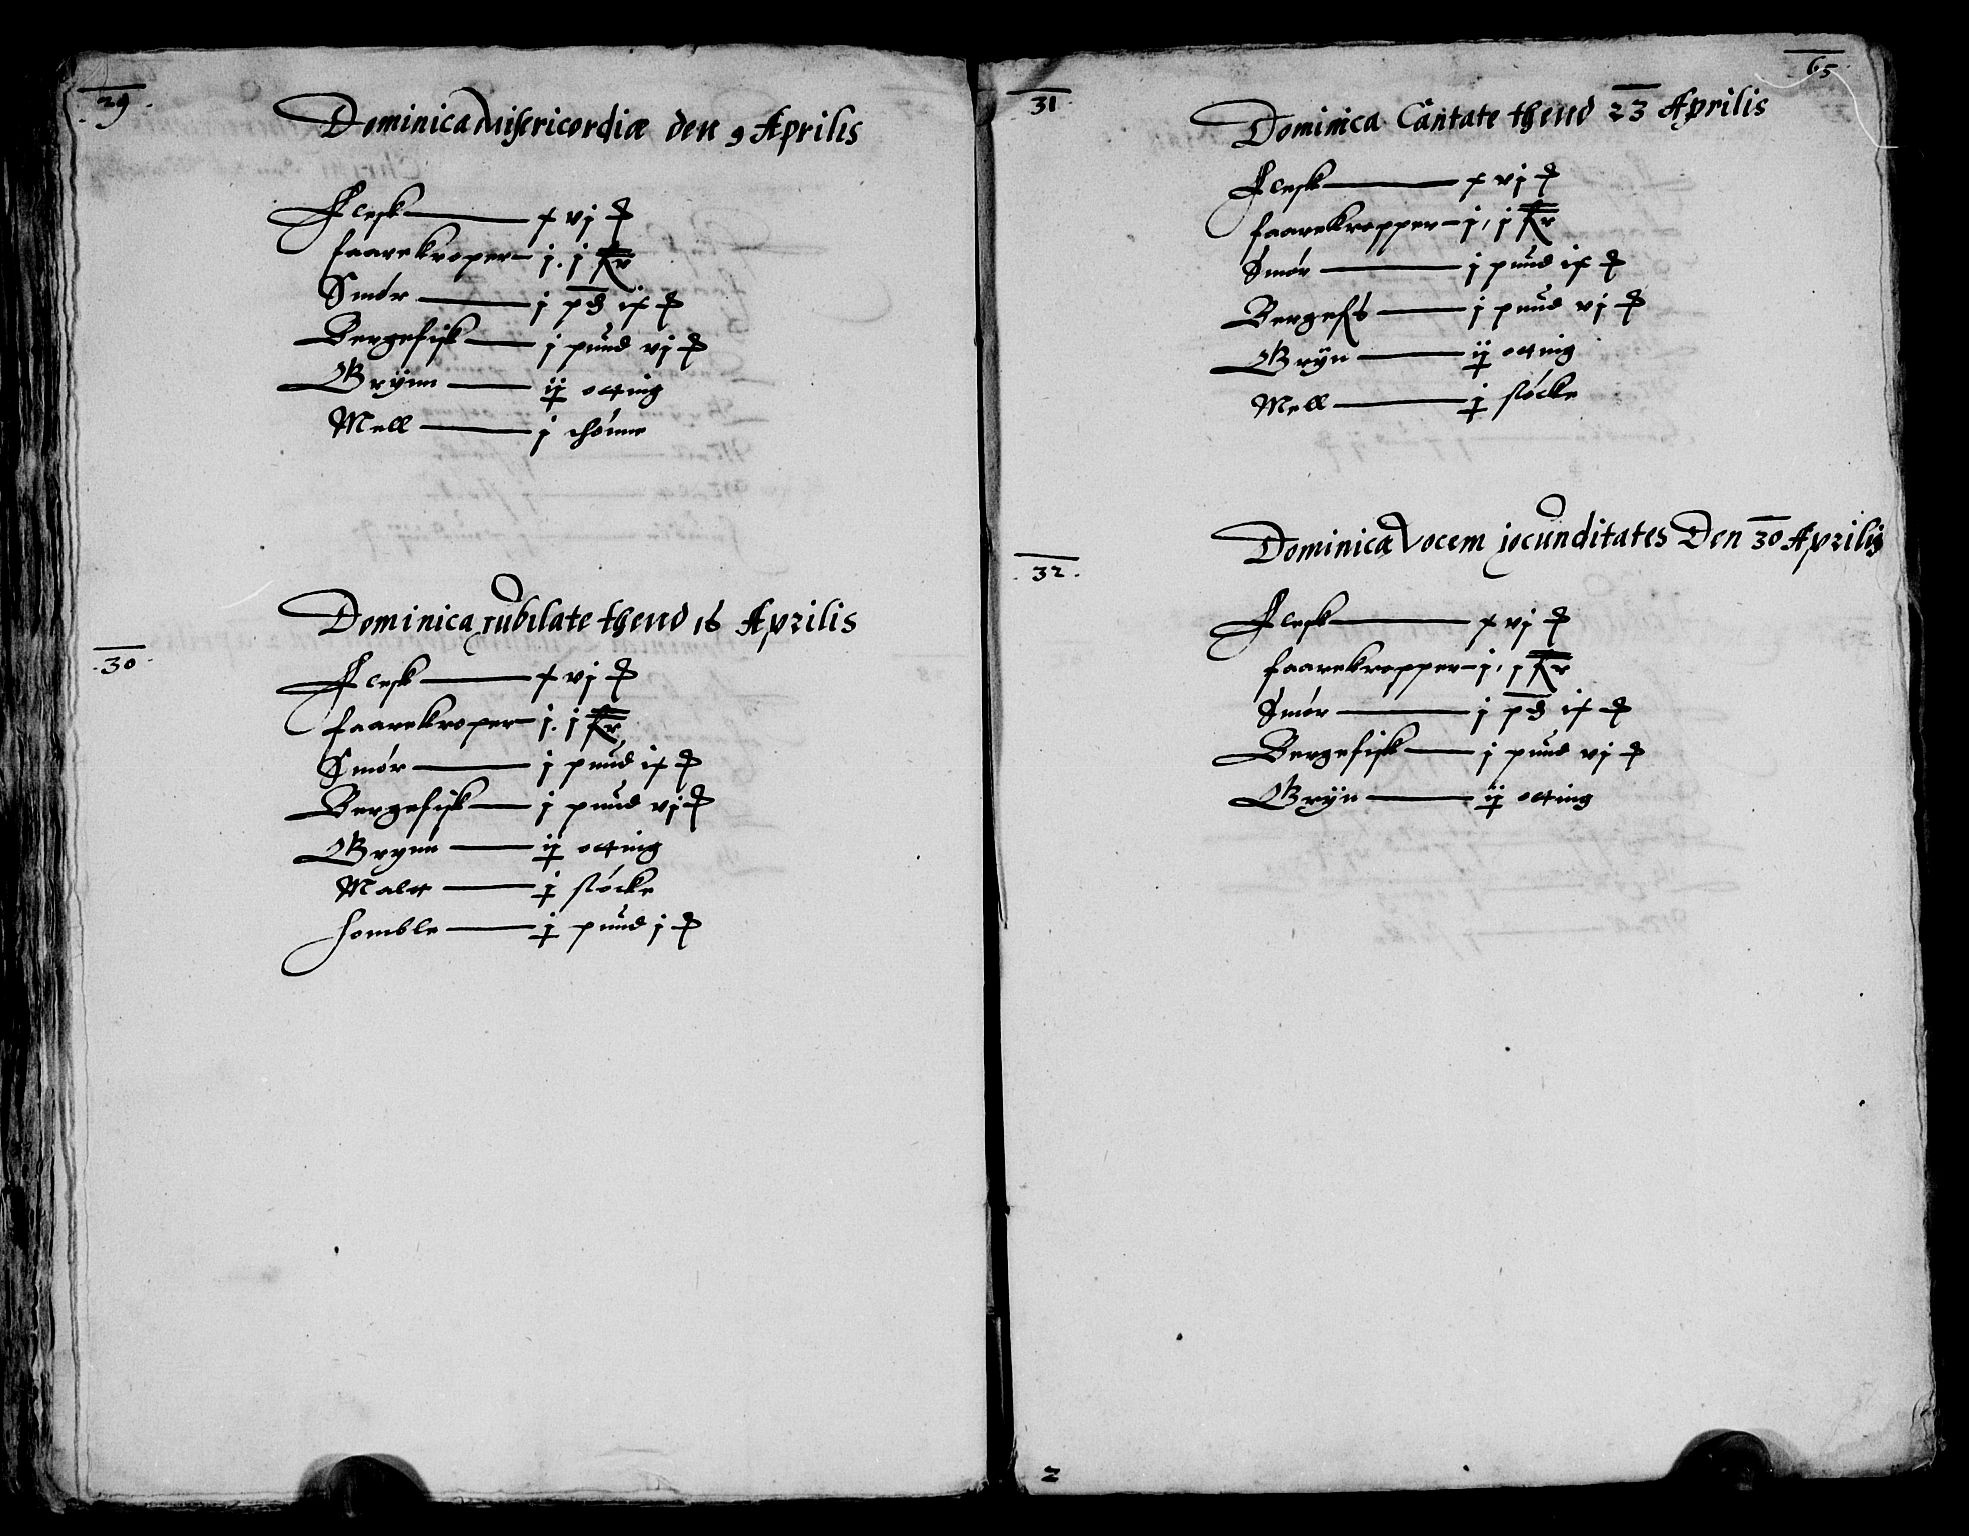 29.
Dominica Misericordiæ den 9 Aprilis
Flesk — x vj ℔
faarekroper — j. j
Smør — j pd ix ℔
Bergefisk — j pund vj ℔
Grÿnn — ij octing
Mell — j thønne
30.
Dominica Jubilate thend 16 Aprilis
Flesk — x vj ℔
faarekroper — j. j
Smør — j pund ix ℔
Bergefisk — j pund vj ℔
Grynn — ij otting
Malt — j støcke
homble — j pund j ℔
65
31
Dominica Cantate thend 23 Aprilis
Flesk — x vj ℔
faarekropper — j, j
Smør — j pund ix ℔
Bergefs — j pund vj ℔
Grÿn — ij otting
Mell — j støcke
32.
Dominica Vocem jocunditates Den 30 Aprilis
Flesk — x vj ℔
faarekropper — j, j
Smør — j pd ix ℔
Bergefisk — j pund vj ℔
Grÿn — ij otting
2